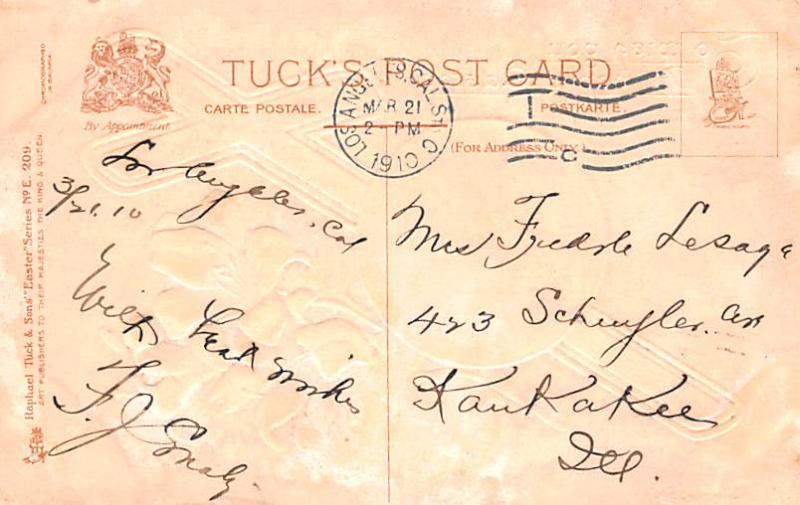 TUCK'S POST CARD
CARTE POSTALE.
POSTKARTE.
(FOR ADDRESS ONLY.)
By Appointment
LOS ANGELES, CAL. STA. C
MAR 21
2 - PM
1910
C
Los Angeles, Cal
3/21.10
With best wishes
F. J.
Mrs Lesage
423 Schuyler. Av
KanKaKee
Ill.
Raphael Tuck & Sons' "Easter" Series No E. 209.
ART PUBLISHERS TO THEIR MAJESTIES THE KING & QUEEN.
CHROMOGRAPHED
IN SAXONY